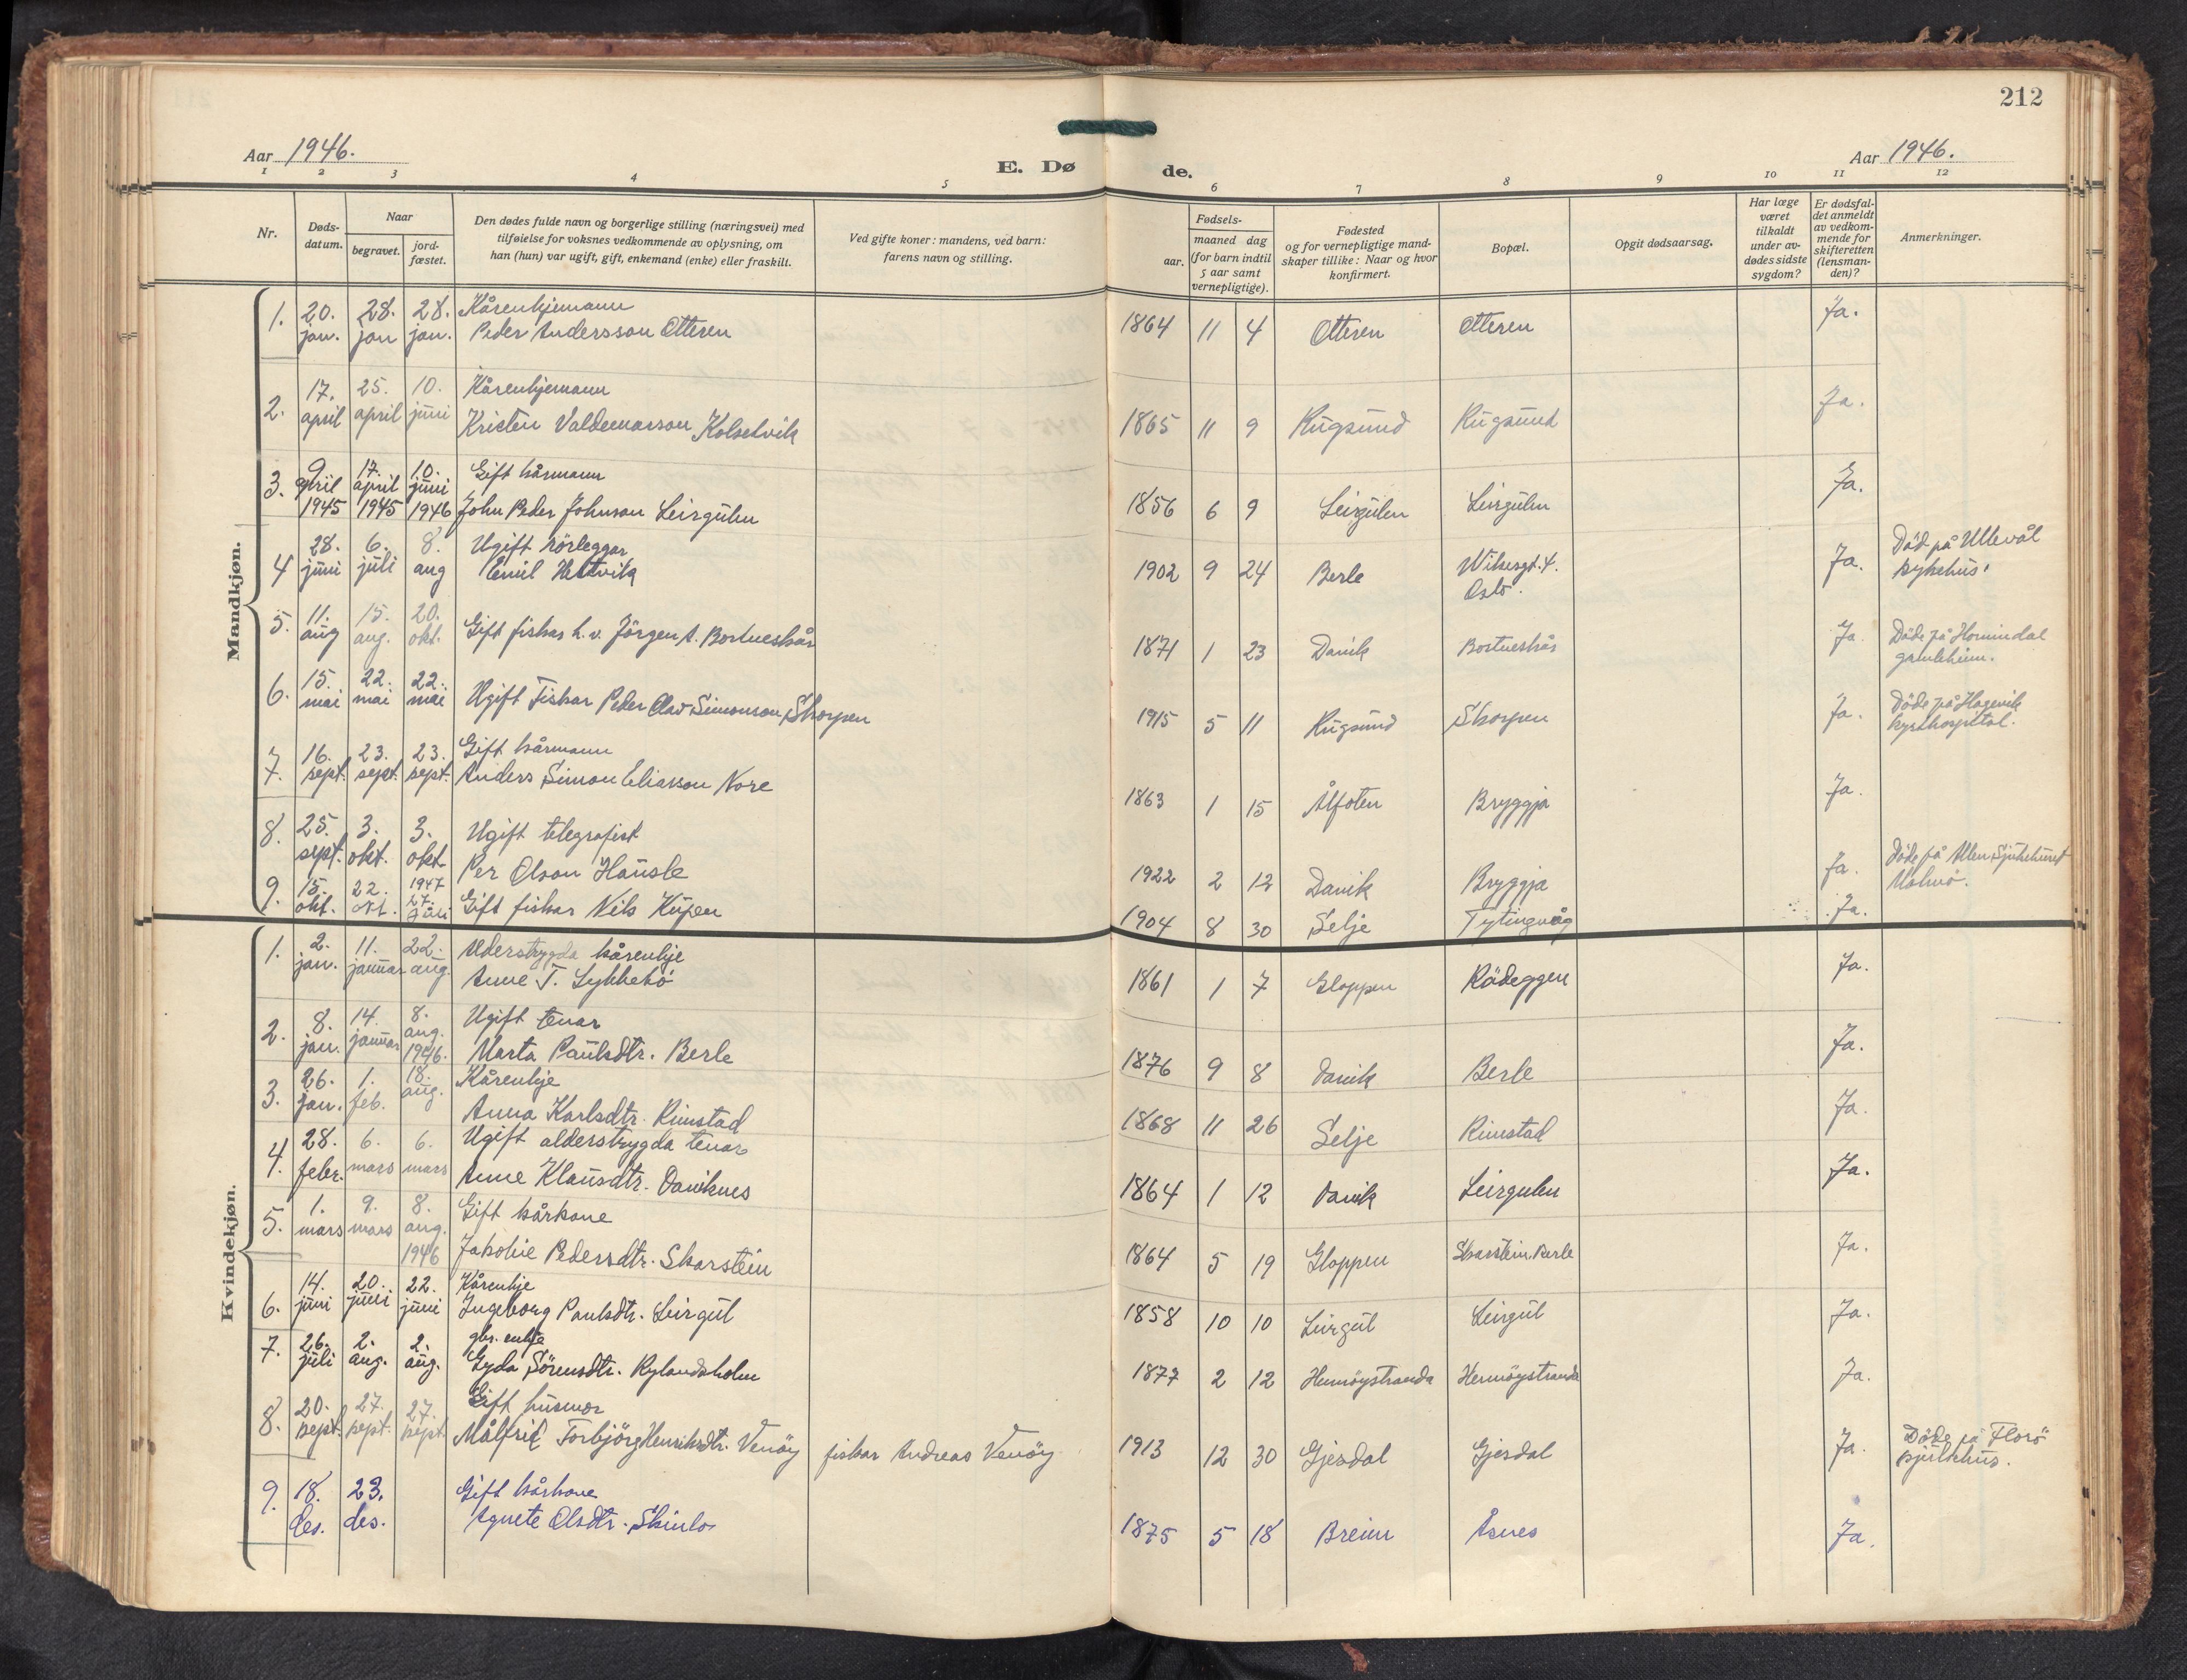 212
Aar 1946.
E. Døde.
Aar 1946.
1 2 3 4 5 6 7 8 9 10 11 12
Nr.
Døds-
datum.
Naar
begravet.
jord-
fæstet.
Den dødes fulde navn og borgerlige stilling (næringsvei) med
tilføielse for voksnes vedkommende av oplysning, om
han (hun) var ugift, gift, enkemand (enke) eller fraskilt.
Ved gifte koner: mandens, ved barn:
farens navn og stilling.
Fødsels-
aar.
maaned dag
(for barn indtil
5 aar samt
vernepligtige).
Fødested
og for vernepligtige mand-
skaper tillike: Naar og hvor
konfirmert.
Bopæl.
Opgit dødsaarsag.
Har læge
været
tilkaldt
under av-
dødes sidste
sygdom?
Er dødsfal-
det anmeldt
av vedkom-
mende for
skifteretten
(lensman-
den)?
Anmerkninger.
Mandkjøn.
1. 20. jan. 28. jan 28. jan. Kårenkjemann
Peder Andersson Otteren 1864 11 4 Otteren Otteren Ja.
2. 17. april 25. april 10. juni Kårenkjemann
Kristen Valdemarson Kolsetvik 1865 11 9 Rugsund Rugsund Ja.
3. 9. april 1945 17. april 1945 10. juni 1946 Gift kårmann
John Peder Johnson Leirgulen 1856 6 9 Leirgulen Leirgulen Ja.
4 28. juni 6. juli 8. aug Ugift rörleggar
Emil Hestvik 1902 9 24 Berle Wilsesgt. 4. Oslo. Ja. Död på Ullevål
sykehus.
5. 11. aug 15. aug. 20. okt. Gift fiskar h. v. Jörgen A. Bortneskår 1871 1 23 Davik Bortneskår Ja. Döde på Hornindal
gamleheim.
6. 15. mai 22. mai 22. mai Ugift Fiskar Peder Olav Simonson Skorpen 1915 5 11 Rugsund Skorpen Ja. Döde på Hagevik
kysthospital.
7. 16. sept. 23. sept. 23. sept. Gift kårmann
Anders Simon Eliasson Nore 1863 1 15 Ålfoten Bryggja Ja.
8. 25. sept. 3. okt. 3. okt. Ugift telegrafist
Per Olson Hausle 1922 2 12 Davik Bryggja Ja. Döde på Allen. Sjukehuset
Malmö.
9. 15. okt. 22. okt. 1947 27. juli Gift fiskar Nils Kupen 1904 8 30 Selje Tytingvåg Ja.
Kvindekjøn.
1. 2. jan. 11. januar 22. aug. Alderstrygda kårenkje
Anne T. Lykkebö 1861 1 7 Gloppen Rödeggen Ja.
2. 8. jan. 14. januar 8. aug. 1946. Ugift tenar
Marta Paulsdtr. Berle 1876 9 8 Davik Berle Ja.
3. 26. jan. 1. feb. 18. aug. Kårenkje
Anna Karlsdtr. Rimstad 1868 11 26 Selje Rimstad Ja.
4. 28. febr. 6. mars 6. mars Ugift alderstrygda tenar
Anne Klausdtr. Daviknes 1864 1 12 Davik Leirgulen Ja.
5. 1. mars 9. mars 8. aug. 1946 Gift kårkone
Jakobie Pedersdtr. Skarstein 1864 5 19 Gloppen Skarstein, Berle Ja.
6. 14. juni 20. juni 22. juni Kårenkje
Ingeborg Paulsdtr. Leirgul 1858 10 10 Leirgul Leirgul Ja.
7. 26. juli 2. aug. 2. aug. gbr. enkje
Gyda Sörensdtr. Rylandsholm 1877 2 12 Hennöystranda Hennöystranda Ja.
8. 20. sept. 27. sept. 27. sept Gift husmor
Målfrid Torbjörg Henriksdtr. Venöy fiskar Andreas Venöy 1913 12 30 Gjesdal Gjesdal Ja. Döde på Florö
sjukehus.
9. 18. des. 23. des. Gift kårkone
Agnete Olsdtr. Skinlo 1875 5 18 Breim Åsnes Ja.